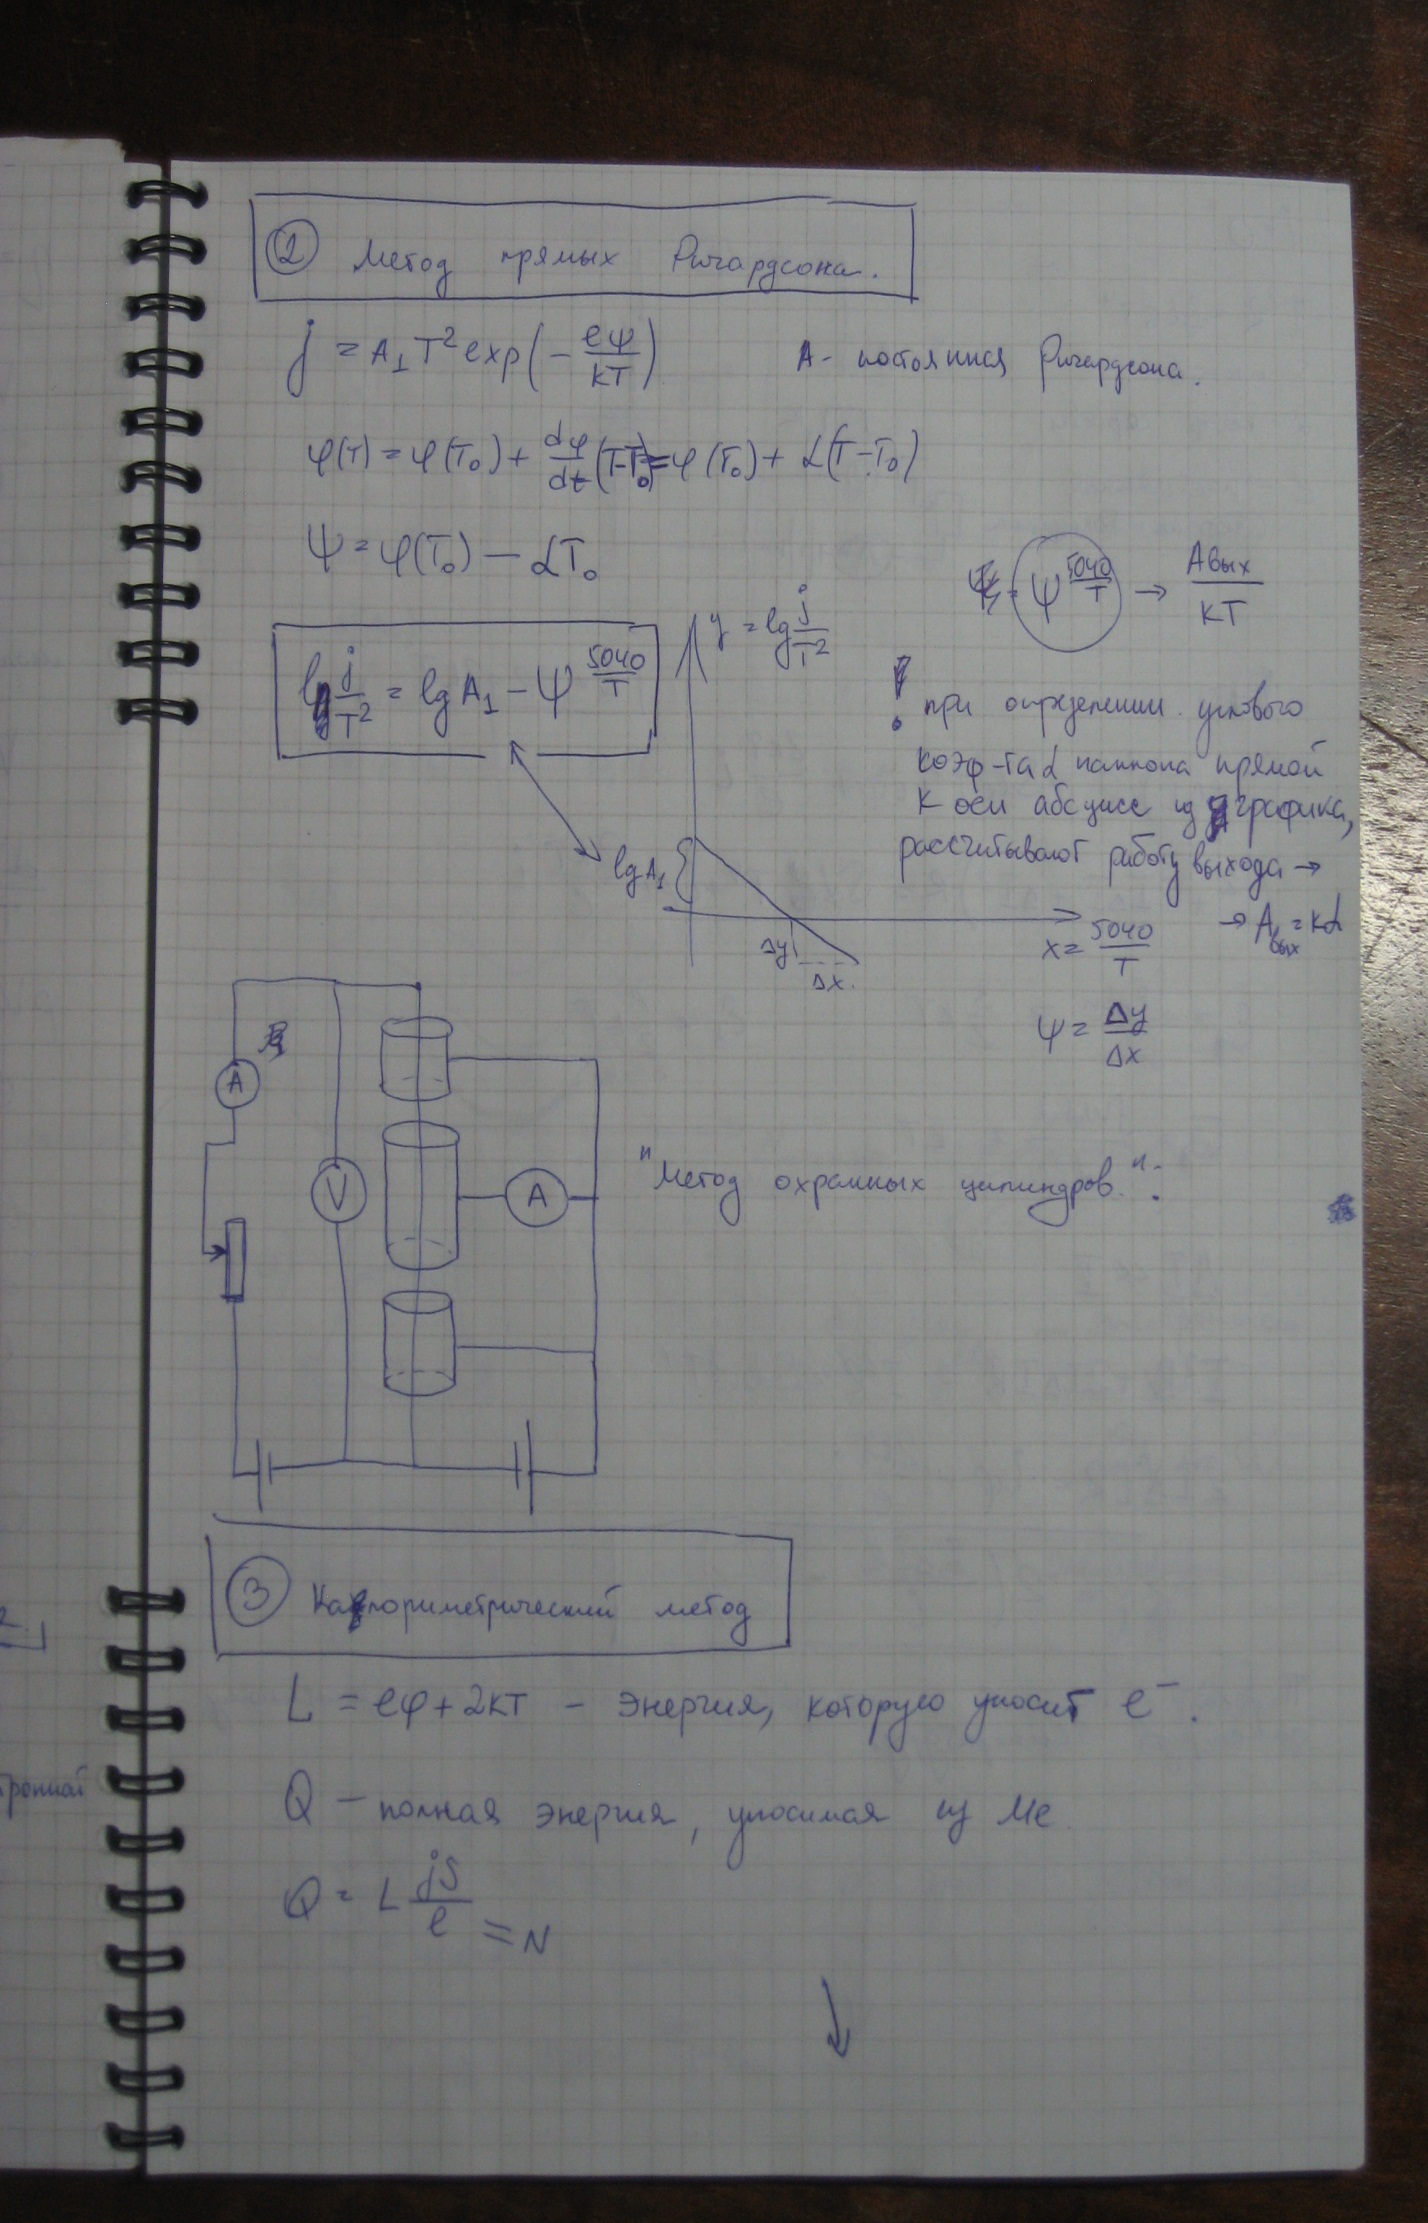 ② Метод прямых Ричардсона.
j = A₁T² exp(-eψ/kT)
A - постоянная Ричардсона.
φ(T) = φ(T₀) + dφ/dt (T-T₀) = φ(T₀) + α(T-T₀)
ψ = φ(T₀) — αT₀
ψ 5040/T → Aвых/kT
lg j/T² = lg A₁ - ψ 5040/T
y = lg j/T²
! при определении углового
коэф-та α наклона прямой
к оси абсцисс из графика,
рассчитывают работу выхода →
→ Aвых = kα
lg A₁
Δy
Δx.
x = 5040/T
ψ = Δy/Δx
A
V
A
"Метод охранных цилиндров.":
③ Калориметрический метод
L = eφ + 2kT - энергия, которую уносит e⁻.
Q - полная энергия, уносимая из Me
Q = L jS/e = N
2
тронной